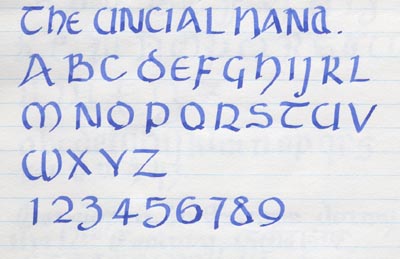 The UNCIAL hand.
A B C D E F G H I J K L
M N O P Q R S T U V
W X Y Z
1 2 3 4 5 6 7 8 9